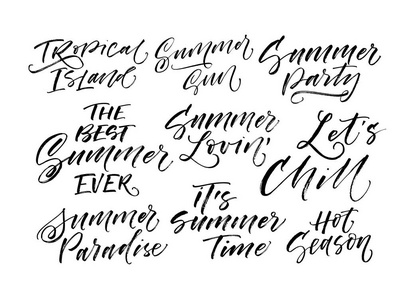 TRopical
Island
Summer
Sun
Summer
Party
THE
BEST
Summer
EVER
Summer
Lovin'
Let's
Chill
Summer
Paradise
It's
Summer
Time
Hot
Season